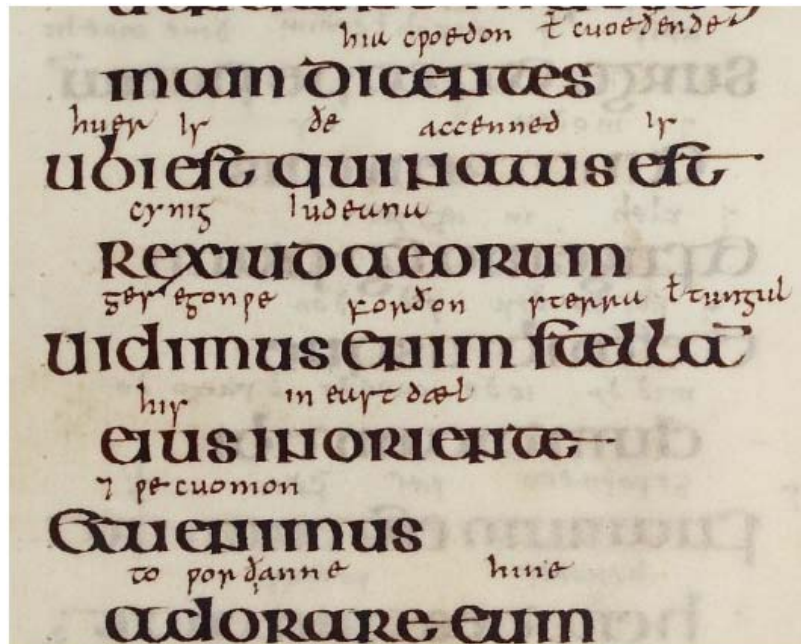 hia cƿoedon ł cuoeðende
mam dicentes
huer is ðe accenned is
ubi est qui natus est
cynig iudeana
rex iudaeorum
gesegon ƿe forðon sterru ł tungul
uidimus enim stella̅
his in eust dæl
eius in oriente
⁊ ƿe cuomon
et uenimus
to ƿorðanne hine
adorare eum